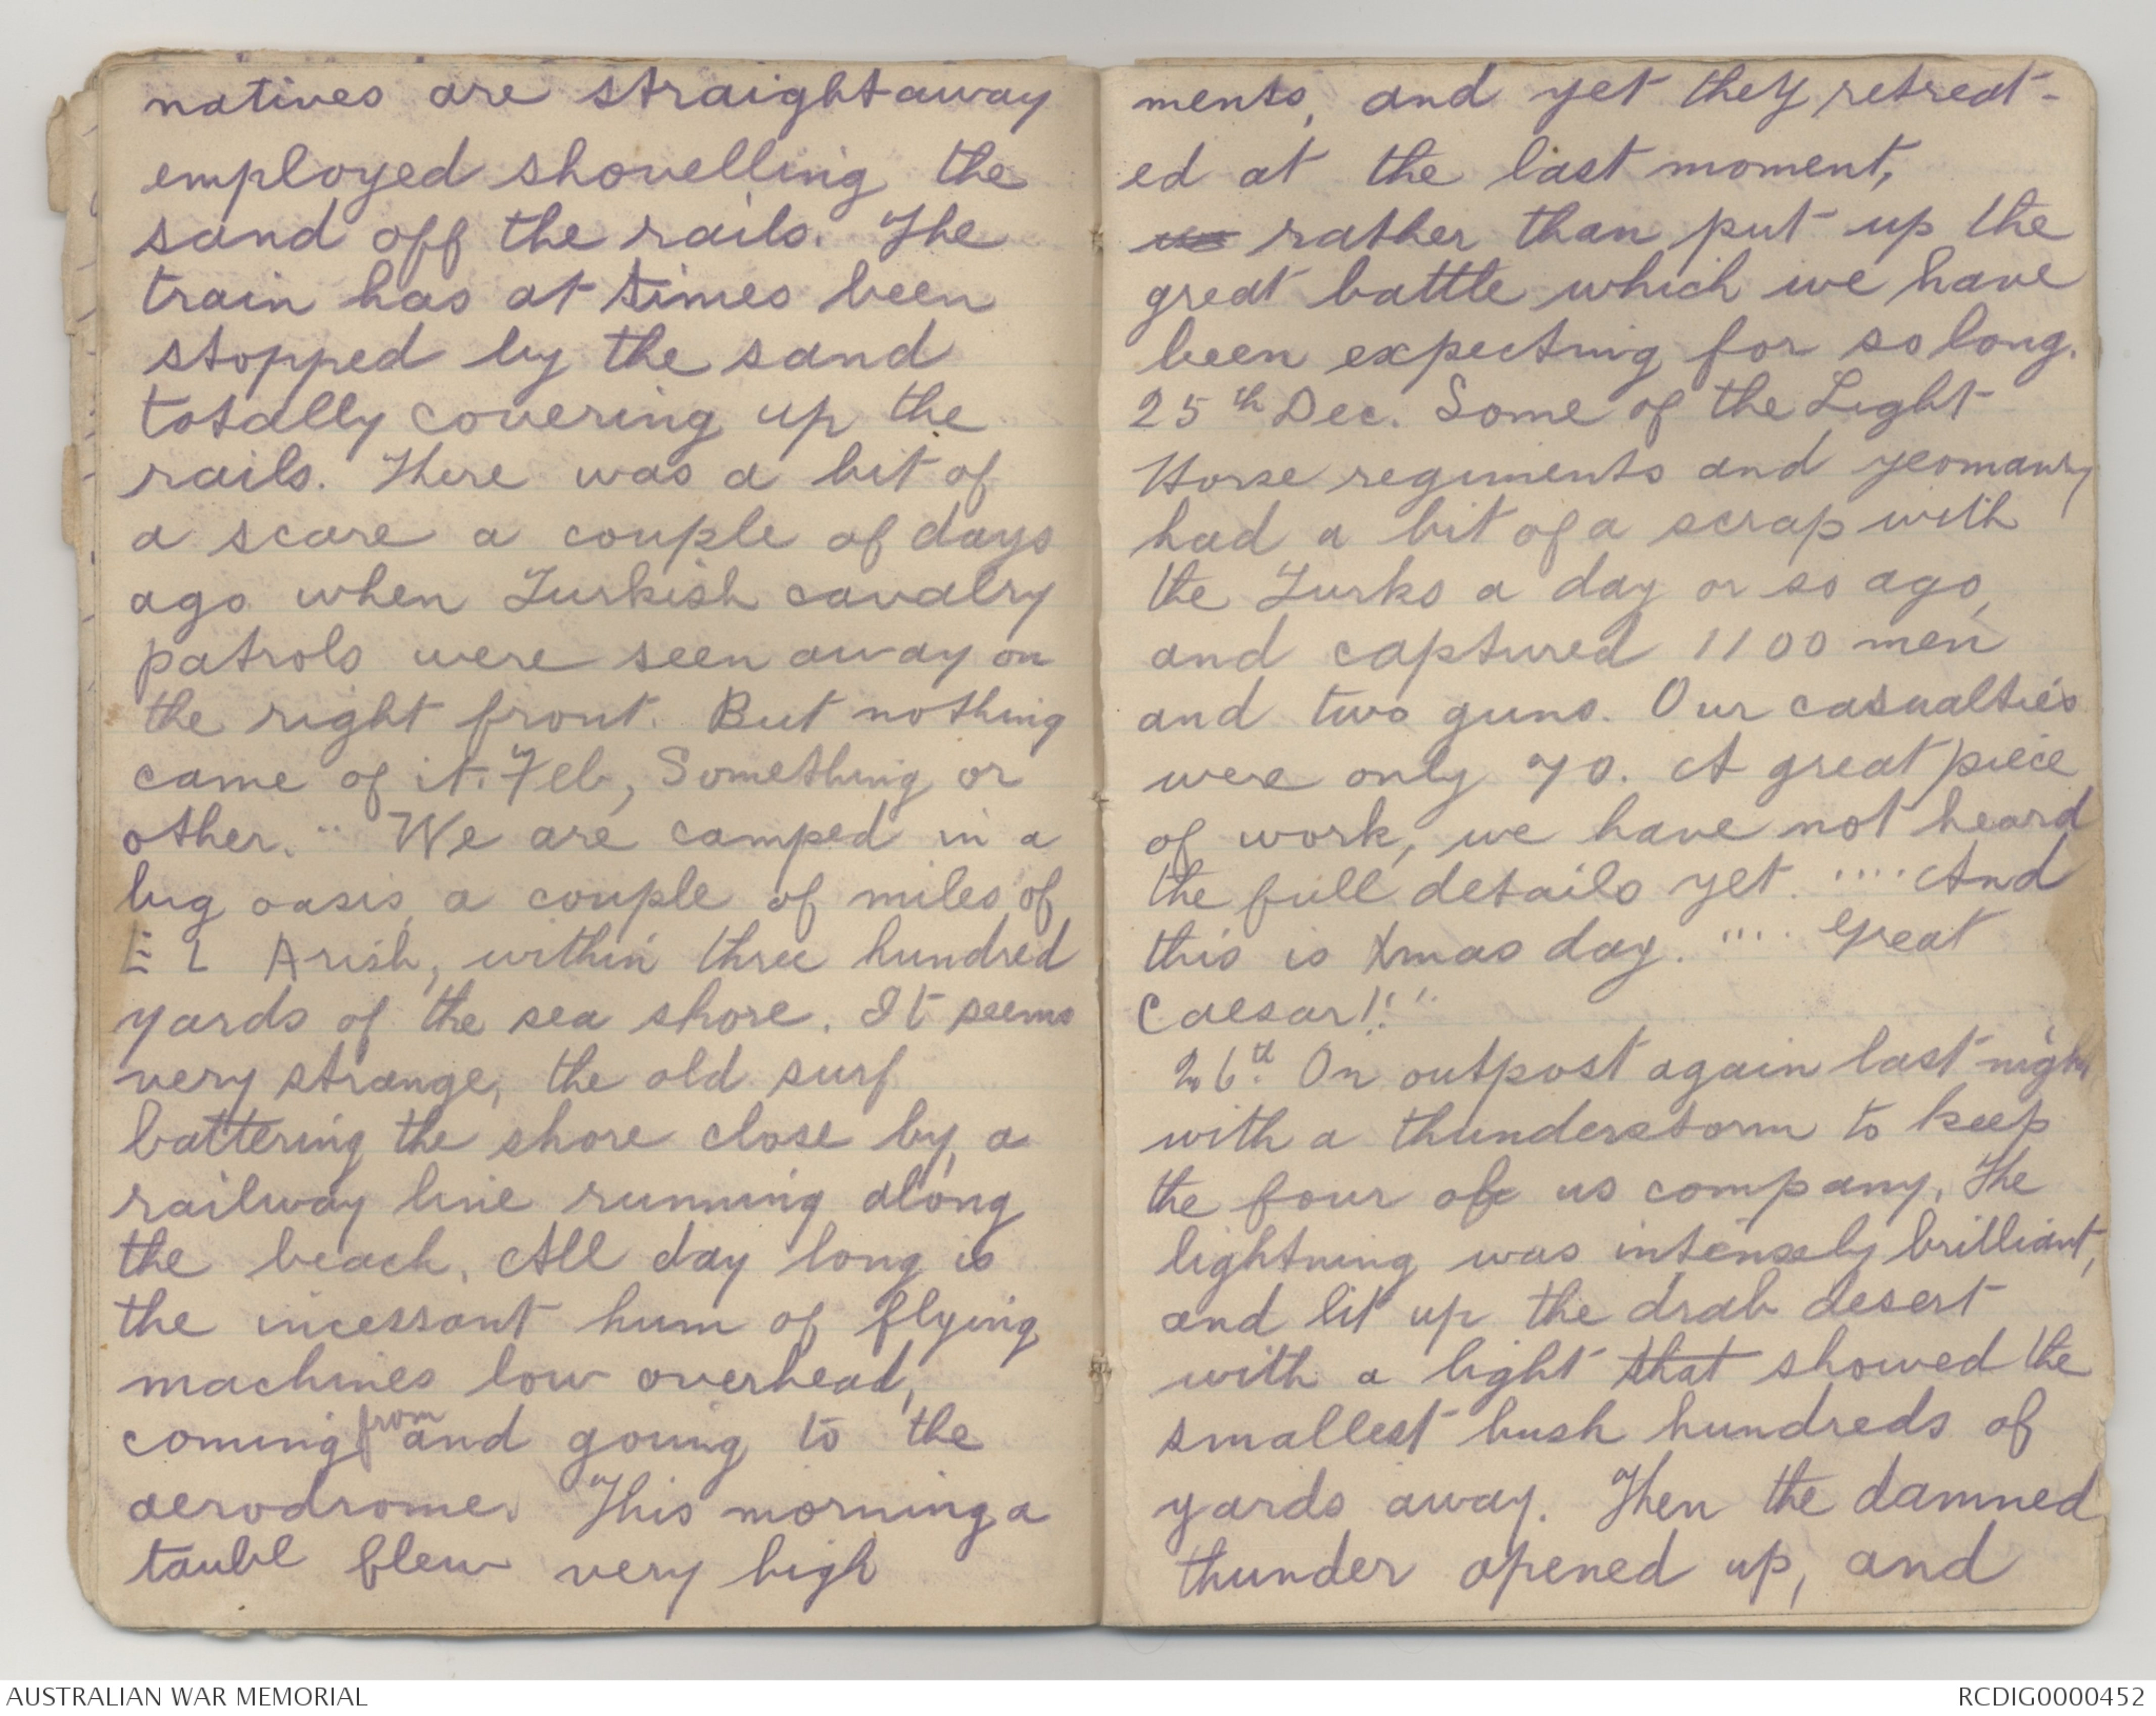 natives are straightaway
employed shovelling the
sand off the rails. The
train has at times been
stopped by the sand
totally covering up the
rails. There was a bit of
a scare a couple of days
ago when Turkish cavalry
patrols were seen away on
the right front. But nothing
came of it. Feb, Something or
other. .. We are camped in a
big oasis, a couple of miles of
El Arish, within three hundred
yards of the sea shore. It seems
very strange, the old surf
battering the shore close by, a
railway line running along
the beach. All day long is
the incessant hum of flying
machines low overhead,
coming from and going to the
aerodrome. This morning a
taube flew very high
ments, and yet they retreat-
ed at the last moment,
rather than put up the
great battle which we have
been expecting for so long.
25th Dec. Some of the Light
Horse regiments and yeomanry
had a bit of a scrap with
the Turks a day or so ago,
and captured 1100 men
and two guns. Our casualties
were only 70. A great piece
of work, we have not heard
the full details yet. .... And
this is Xmas day. .... Great
Caesar!!"
26th. On outpost again last night
with a thunderstorm to keep
the four of us company. The
lightning was intensely brilliant,
and lit up the drab desert
with a light that showed the
smallest bush hundreds of
yards away. Then the damned
thunder opened up, and
AUSTRALIAN WAR MEMORIAL
RCDIG0000452